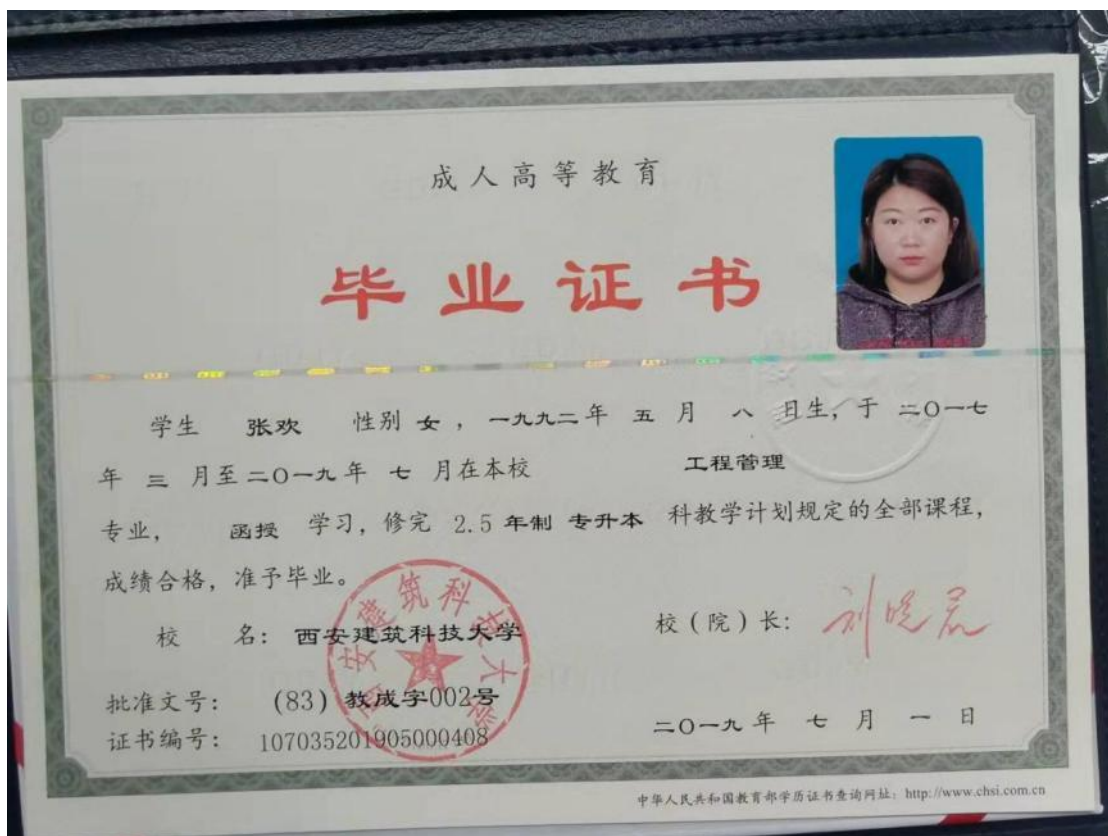 成人高等教育
毕业证书
学生 张欢 性别 女 ， 一九九二年 五 月 八 日生，于 二〇一七
年 三 月至二〇一九年 七 月在本校 工程管理
专业， 函授 学习，修完 2.5 年制 专升本 科教学计划规定的全部课程，
成绩合格，准予毕业。
校 名：西安建筑科技大学
校（院）长：刘晓君
西安建筑科技大学
批准文号： (83) 教成字002号
证书编号： 107035201905000408
二〇一九年 七 月 一 日
中华人民共和国教育部学历证书查询网址：http://www.chsi.com.cn